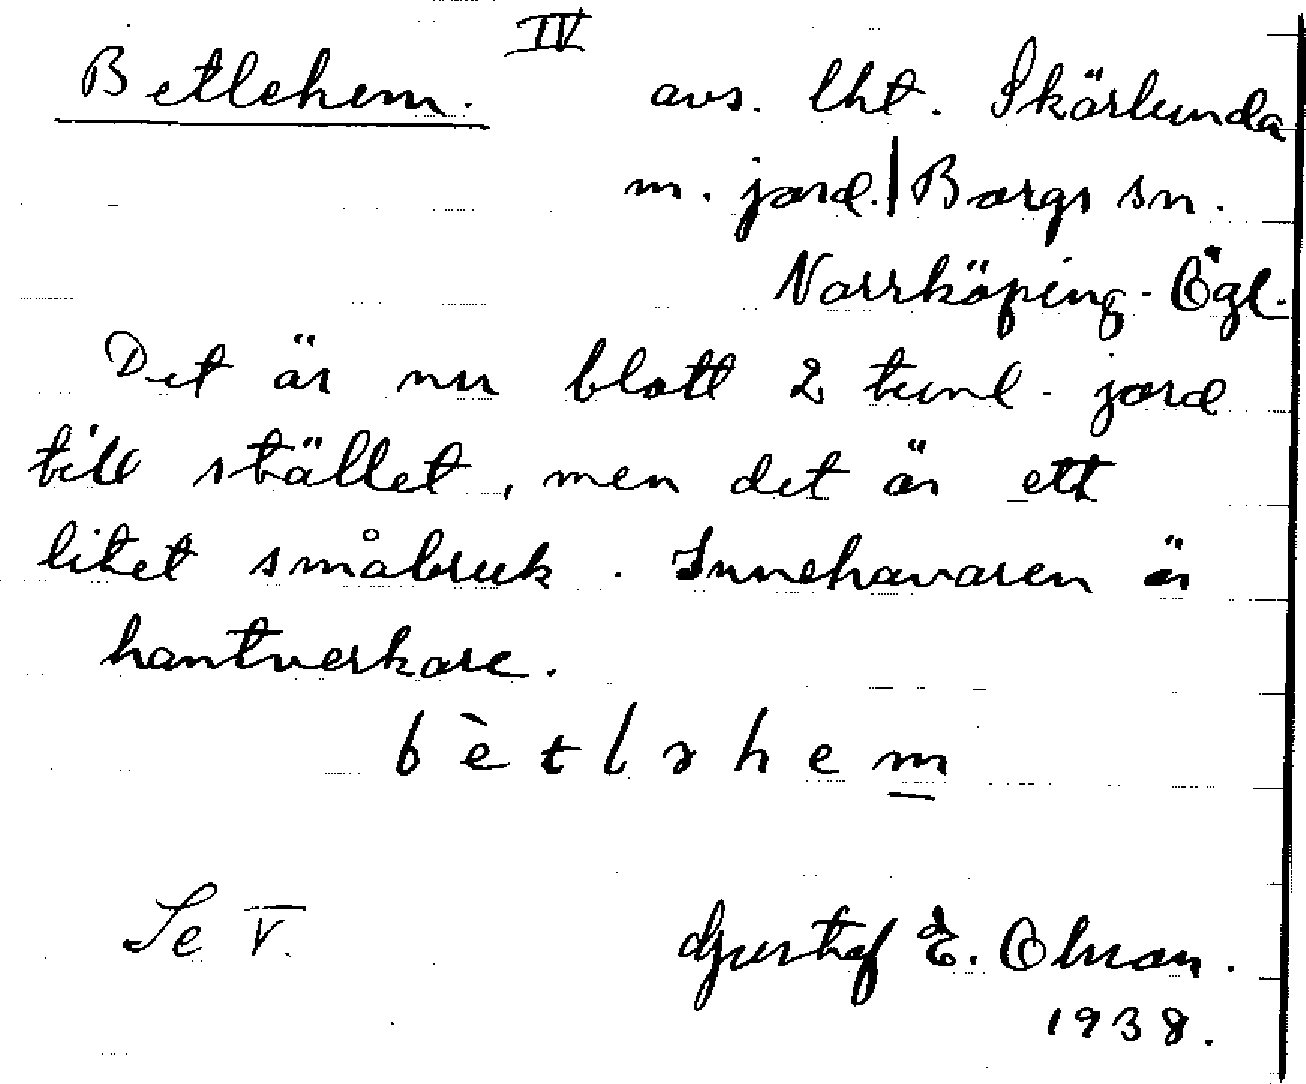 Betlehem. IV avs. lht. Skärlunda
m. jord. | Borgs sn.
Norrköping. Ögl.
Det är nu blott 2 tunl. jord
till stället, men det är ett
litet småbruk. Innehavaren är
hantverkare.
bètləhem
Se V. Gustaf E. Olsson.
1938.